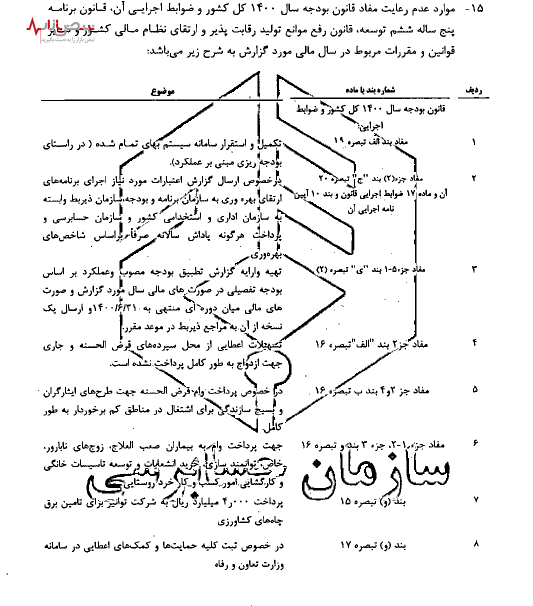 ۱۵- موارد عدم رعایت مفاد قانون بودجه سال ۱۴۰۰ کل کشور و ضوابط اجرایی آن، قانون برنامه
پنج ساله ششم توسعه، قانون رفع موانع تولید رقابت پذیر و ارتقای نظام مالی کشور و سایر
قوانین و مقررات مربوط در سال مالی مورد گزارش به شرح زیر می‌باشد:
ردیف شماره بند یا ماده موضوع
قانون بودجه سال ۱۴۰۰ کل کشور و ضوابط
اجرایی:
۱ مفاد بند الف تبصره ۱۹ تکمیل و استقرار سامانه سیستم بهای تمام شده ( در راستای
بودجه ریزی مبنی بر عملکرد).
۲ مفاد جزء(۲) بند "ج" تبصره ۲۰ درخصوص ارسال گزارش اعتبارات مورد نیاز اجرای برنامه‌های
آن و ماده ۱۷ ضوابط اجرایی قانون و بند ۱۰ آیین ارتقای بهره وری به سازمان برنامه و بودجه، سازمان ذیربط وابسته
نامه اجرایی آن به سازمان اداری و استخدامی کشور و سازمان حسابرسی و
پرداخت هرگونه پاداش سالانه صرفاً براساس شاخص‌های
بهره‌وری
۳ مفاد جزء ۵-۱ بند "ی" تبصره (۲) تهیه وارایه گزارش تطبیق بودجه مصوب وعملکرد بر اساس
بودجه تفصیلی در صورت های مالی سال مورد گزارش و صورت
های مالی میان دوره ای منتهی به ۱۴۰۰/۶/۳۱ و ارسال یک
نسخه از آن به مراجع ذیربط در موعد مقرر.
۴ مفاد جز۲ بند "الف"تبصره ۱۶ تسهیلات اعطایی از محل سپرده‌های قرض الحسنه و جاری
جهت ازدواج به طور کامل پرداخت نشده است.
۵ مفاد جز ۲و۴ بند ب تبصره ۱۶ در خصوص پرداخت وام قرض الحسنه جهت طرح‌های ایثارگران
و بسیج سازندگی برای اشتغال در مناطق کم برخوردار به طور
کامل
۶ مفاد جزء ۱-۲، جزء ۳ بند و تبصره ۱۶ جهت پرداخت وام به بیماران صعب العلاج، زوج‌های نابارور،
خاص، توانمند سازی، خرید انشعابات و توسعه تاسیسات خانگی
و کارگشایی امور کسب و کار خرد روستایی
سازمان حسابرسی
۷ بند (و) تبصره ۱۵ پرداخت ۴٫۰۰۰ میلیارد ریال به شرکت توانیر برای تامین برق
چاه‌های کشاورزی
۸ بند (و) تبصره ۱۷ در خصوص ثبت کلیه حمایت‌ها و کمک‌های اعطایی در سامانه
وزارت تعاون و رفاه